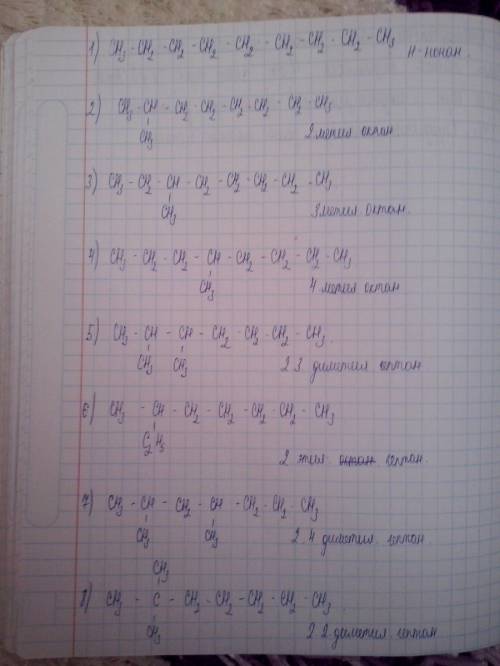 1) CH3 - CH2 - CH2 - CH2 - CH2 - CH2 - CH2 - CH2 - CH3
н-нонан
2) CH3 - CH - CH2 - CH2 - CH2 - CH2 - CH2 - CH3
CH3
2 метил октан
3) CH3 - CH2 - CH - CH2 - CH2 - CH2 - CH2 - CH3
CH3
3 метил октан.
4) CH3 - CH2 - CH2 - CH - CH2 - CH2 - CH2 - CH3
CH3
4 метил октан
5) CH3 - CH - CH - CH2 - CH2 - CH2 - CH3
CH3 CH3
2 3. диметил гептан
6) CH3 - CH - CH2 - CH2 - CH2 - CH2 - CH3
C2H5
2 этил октан гептан.
7) CH3 - CH - CH2 - CH - CH2 - CH2 - CH3
CH3 CH3
2. 4 диметил гептан
CH3
8) CH3 - C - CH2 - CH2 - CH2 - CH2 - CH3
CH3
2 2. диметил. гептан